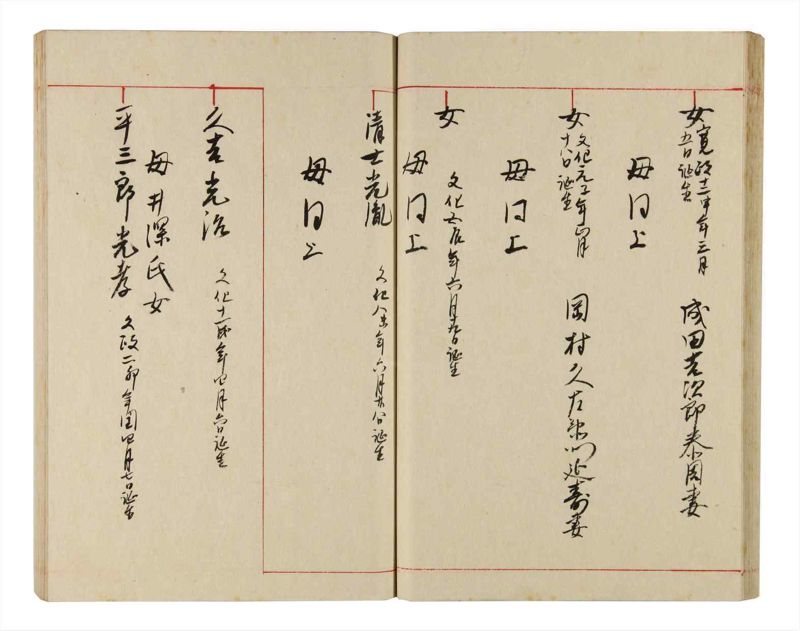 女 寛政十二申年三月
五日誕生
成田吉次郎泰周妻
母同上
女 文化元子年 月
十八日誕生
岡村久左衛門延寿妻
母同上
女 文化五辰年六月九日誕生
母同上
清士光胤 文化八未年六月廿八日誕生
母同上
久吉光治 文化十一戌年四月六日誕生
母井深氏女
平三郎光孝 文政二卯年閏四月七日誕生